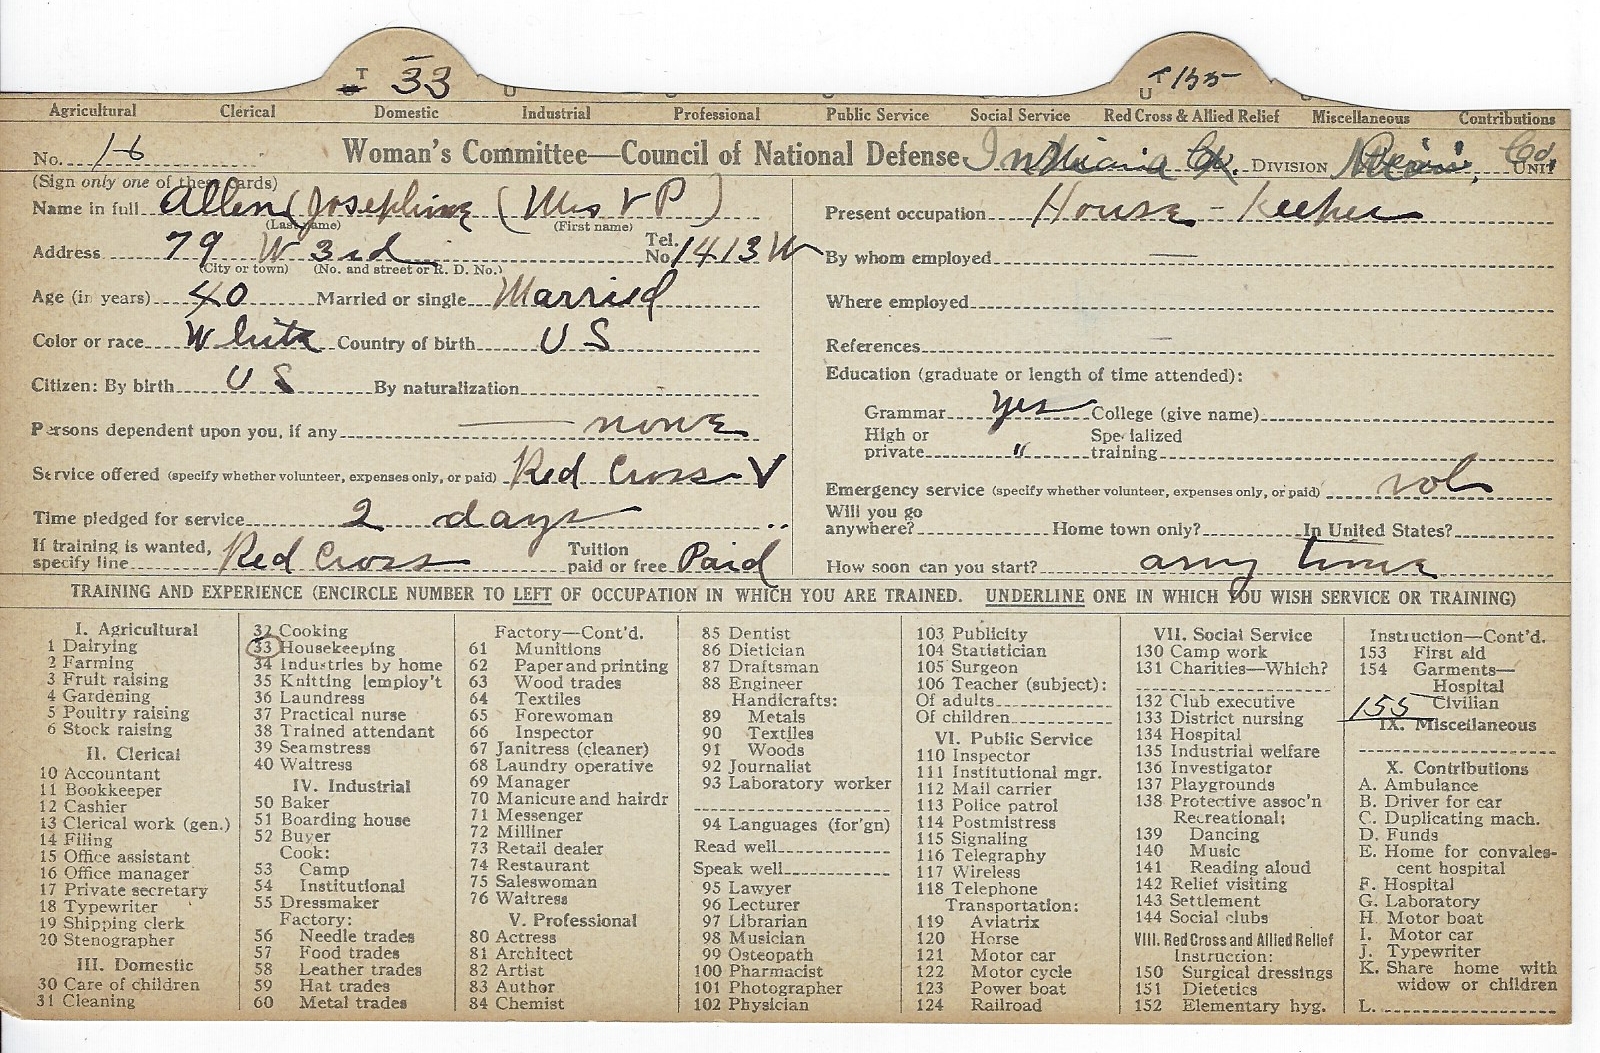 T 33
T 155
U
Agricultural Clerical Domestic Industrial Professional Public Service Social Service Red Cross & Allied Relief Miscellaneous Contributions
No. 16 Woman's Committee—Council of National Defense Indiana DIVISION Co. UNIT
(Sign only one of these cards)
Name in full Allen (Josephine (Mrs V P)
(Last name) (First name)
Address 79 W 3rd Tel. No. 1413 W
(City or town) (No. and street or R. D. No.)
Age (in years) 40 Married or single Married
Color or race White Country of birth U S
Citizen: By birth U S By naturalization
Persons dependent upon you, if any — none
Service offered (specify whether volunteer, expenses only, or paid) Red Cross V
Time pledged for service 2 days
If training is wanted, specify line Red Cross Tuition paid or free Paid
Present occupation House-keeper
By whom employed —
Where employed
References
Education (graduate or length of time attended):
Grammar yes College (give name)
High or private " Specialized training
Emergency service (specify whether volunteer, expenses only, or paid) vol
Will you go anywhere? Home town only? In United States?
How soon can you start? any time
TRAINING AND EXPERIENCE (ENCIRCLE NUMBER TO LEFT OF OCCUPATION IN WHICH YOU ARE TRAINED. UNDERLINE ONE IN WHICH YOU WISH SERVICE OR TRAINING)
I. Agricultural
1 Dairying
2 Farming
3 Fruit raising
4 Gardening
5 Poultry raising
6 Stock raising
II. Clerical
10 Accountant
11 Bookkeeper
12 Cashier
13 Clerical work (gen.)
14 Filing
15 Office assistant
16 Office manager
17 Private secretary
18 Typewriter
19 Shipping clerk
20 Stenographer
III. Domestic
30 Care of children
31 Cleaning
32 Cooking
33 Housekeeping
34 Industries by home
35 Knitting [employ't
36 Laundress
37 Practical nurse
38 Trained attendant
39 Seamstress
40 Waitress
IV. Industrial
50 Baker
51 Boarding house
52 Buyer
Cook:
53 Camp
54 Institutional
55 Dressmaker
Factory:
56 Needle trades
57 Food trades
58 Leather trades
59 Hat trades
60 Metal trades
Factory—Cont'd.
61 Munitions
62 Paper and printing
63 Wood trades
64 Textiles
65 Forewoman
66 Inspector
67 Janitress (cleaner)
68 Laundry operative
69 Manager
70 Manicure and hairdr
71 Messenger
72 Milliner
73 Retail dealer
74 Restaurant
75 Saleswoman
76 Waitress
V. Professional
80 Actress
81 Architect
82 Artist
83 Author
84 Chemist
85 Dentist
86 Dietician
87 Draftsman
88 Engineer
Handicrafts:
89 Metals
90 Textiles
91 Woods
92 Journalist
93 Laboratory worker
94 Languages (for'gn)
Read well
Speak well
95 Lawyer
96 Lecturer
97 Librarian
98 Musician
99 Osteopath
100 Pharmacist
101 Photographer
102 Physician
103 Publicity
104 Statistician
105 Surgeon
106 Teacher (subject):
Of adults
Of children
VI. Public Service
110 Inspector
111 Institutional mgr.
112 Mail carrier
113 Police patrol
114 Postmistress
115 Signaling
116 Telegraphy
117 Wireless
118 Telephone
Transportation:
119 Aviatrix
120 Horse
121 Motor car
122 Motor cycle
123 Power boat
124 Railroad
VII. Social Service
130 Camp work
131 Charities—Which?
132 Club executive
133 District nursing
134 Hospital
135 Industrial welfare
136 Investigator
137 Playgrounds
138 Protective assoc'n
Recreational:
139 Dancing
140 Music
141 Reading aloud
142 Relief visiting
143 Settlement
144 Social clubs
VIII. Red Cross and Allied Relief
Instruction:
150 Surgical dressings
151 Dietetics
152 Elementary hyg.
Instruction—Cont'd.
153 First aid
154 Garments—
Hospital
155 Civilian
IX. Miscellaneous
X. Contributions
A. Ambulance
B. Driver for car
C. Duplicating mach.
D. Funds
E. Home for convales-
cent hospital
F. Hospital
G. Laboratory
H. Motor boat
I. Motor car
J. Typewriter
K. Share home with
widow or children
L.